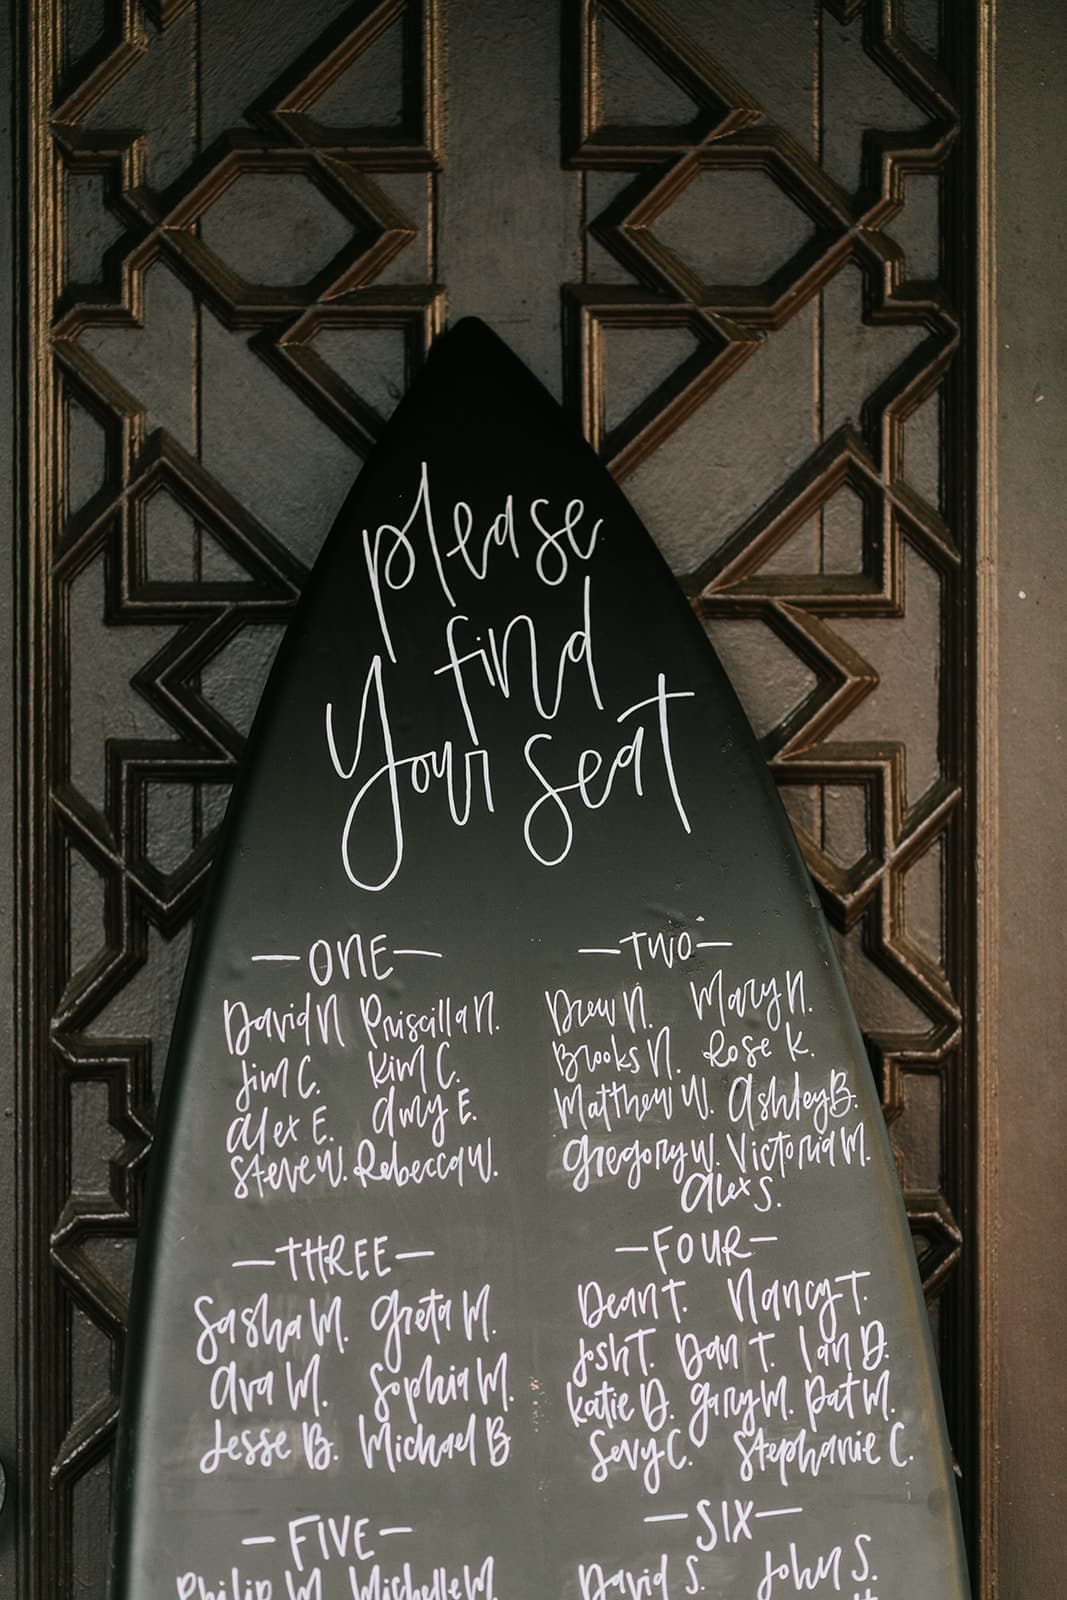 please
find
your seat
—ONE—
David N Priscilla N.
Jim C. Kim C.
Alex E. Amy E.
Steve W. Rebecca W.
—TWO—
Drew N. Mary N.
Brooks N. Rose K.
Matthew W. Ashley B.
Gregory W. Victoria M.
Alex S.
—THREE—
Sasha M. Greta M.
Ava M. Sophia M.
Jesse B. Michael B
—FOUR—
Dean T. Nancy T.
Josh T. Dan T. Ian D.
Katie D. Gary M. Pat M.
Sevy C. Stephanie C.
—FIVE—
Philip M. Michelle M.
—SIX—
David S. John S.